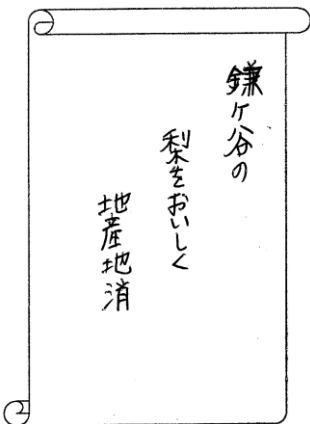 鎌ケ谷の
梨をおいしく
地産地消